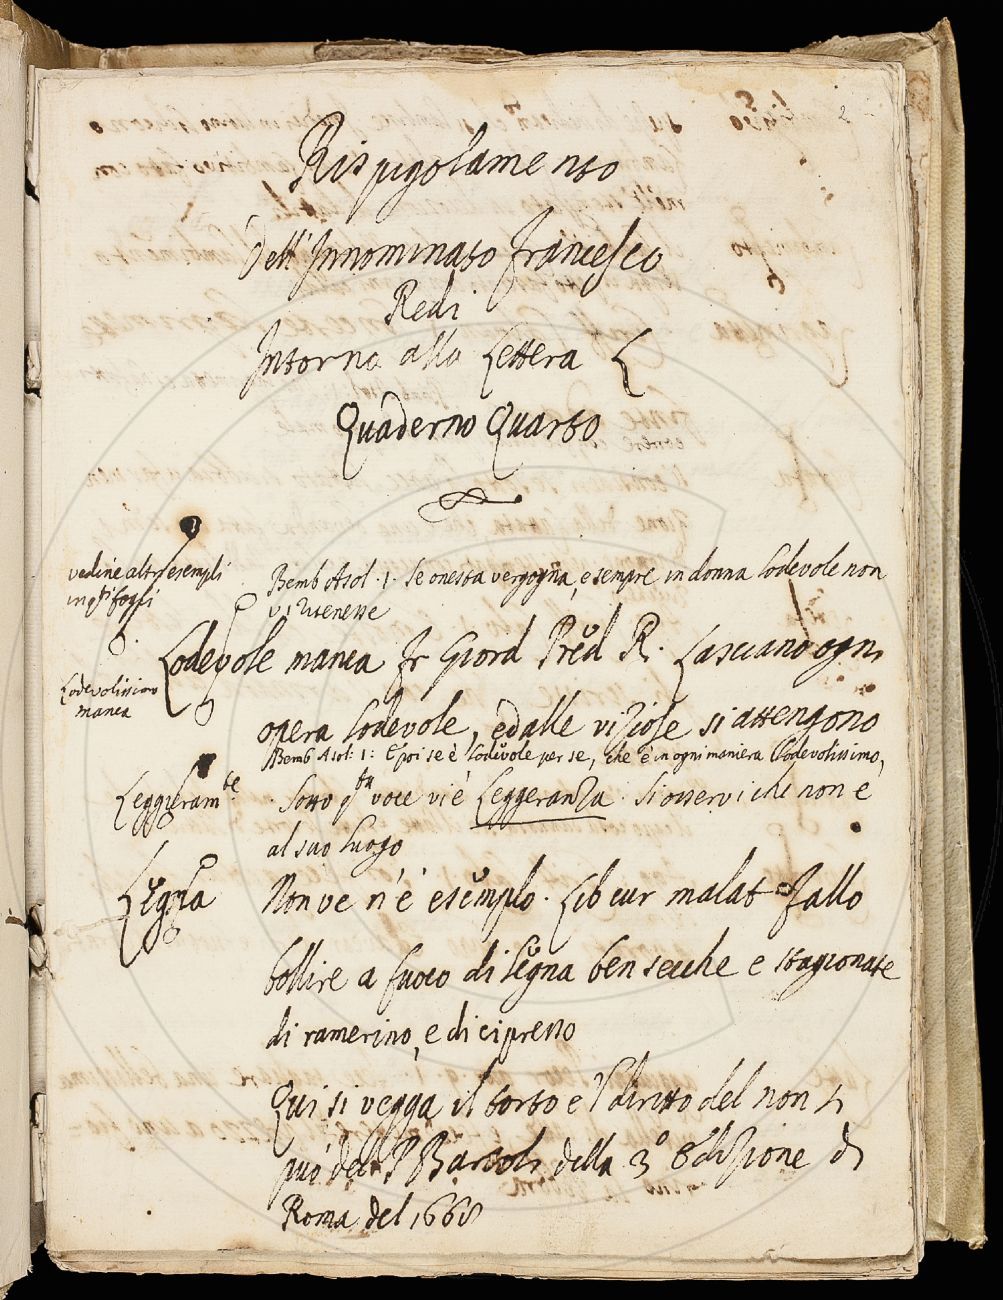 2
Rispigolamento
Dell'Innominato Francesco
Redi
Intorno alla Lettera L
Quaderno Quarto
vedine altri esempli
in qti fogli
Bemb Asol. 1. Se onesta vergogna, e sempre in donna lodevole non
vi ritenesse
Lodevole manca Fr Giord Pred R. Lasciano ogni
Lodevolissimo
manca
opera lodevole, ed alle viziose si attengono
Bemb Asol: 1: E poi se è lodevole per se, che è in ogni maniera lodevolissimo,
Leggieramte
. Sotto qta voce vi è Leggeranza. Si osservi che non e
al suo luogo
Legna
Non ve n'è esemplo. Lib cur malat Fallo
bollire a fuoco di legna ben secche e stagionate
di ramerino, e di cipresso
Qui si vegga il torto e 'l diritto del non si
può del P Bartoli della 3a Edizione di
Roma del 1668